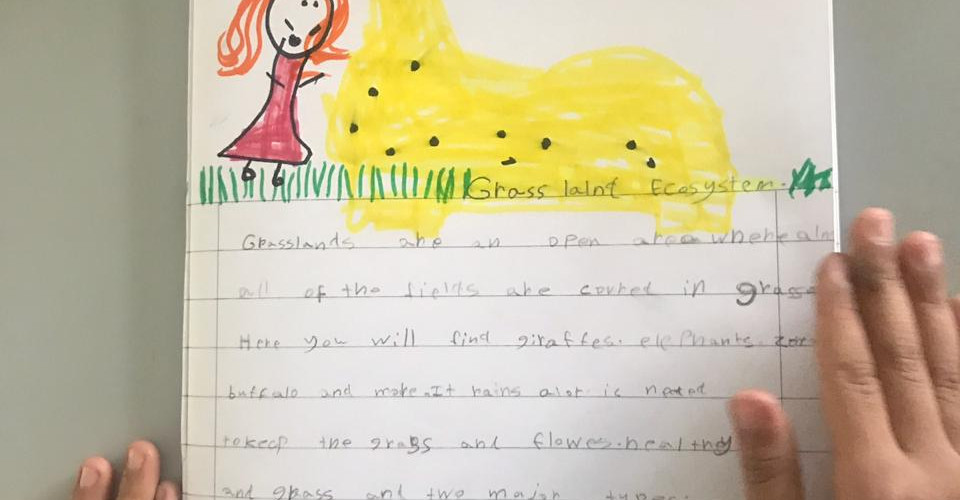 Grass lalnt Ecosystem.
Grasslands are an open area where alm
all of the fields are covred in grass
Here you will find giraffes. elephants.
buffalo and more. It rains alot is neted
tokeep the grass and flowes. healthy
and grass and two major types.